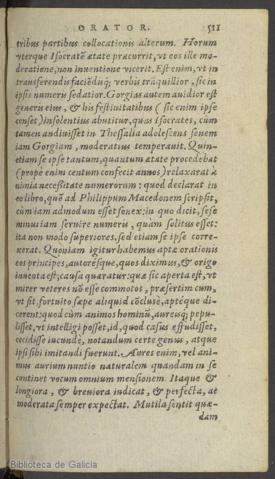 ORATOR. 511
tribus partibus collocationis alterum. Horum
uterque Isocratē ætate præcurrit, vt eos ille mo-
deratione, non inuentione vicerit. Est enim, vt in
transferendis faciēdisq; verbis trāquillior, sic in
ipsis numeris sedatior. Gorgias autem auidior est
generis eius, & his festiuitatibus (sic enim ipse
censet) insolentius abutitur, quas Isocrates, cùm
tamen audiuisset in Thessalia adolescens senem
iam Gorgiam, moderatius temperauit. Quin-
etiam se ipse tantum, quantum ætate procedebat
(prope enim centum confecit annos) relaxarat à
nimia necessitate numerorum: quod declarat in
eo libro, quē ad Philippum Macedonem scripsit,
cùm iam admodum esset senex: in quo dicit, sese
minus iam seruire numeris, quàm solitus esset:
ita non modo superiores, sed etiam se ipse corre-
xerat. Quoniam igitur habemus aptæ orationis
eos principes, autorésque, quos diximus, & origo
inuenta est; causa quæratur: quæ sic aperta est, vt
mirer veteres nō esse commotos, præsertim cum,
vt fit, fortuito sæpe aliquid cōclusè, aptéque di-
cerent: quod cùm animos hominū, aureisq; pepu-
lisset, vt intelligi posset, id, quod casus effudisset,
cecidisse iucundè, notandum certe genus, atque
ipsi sibi imitandi fuerunt. Aures enim, vel ani-
mus aurium nuntio naturalem quandam in se
continet vocum omnium mensionem. Itaque &
longiora, & breuiora indicat, & perfecta, ac
moderata semper expectat. Mutila sentit quæ-
dam
Biblioteca de Galicia